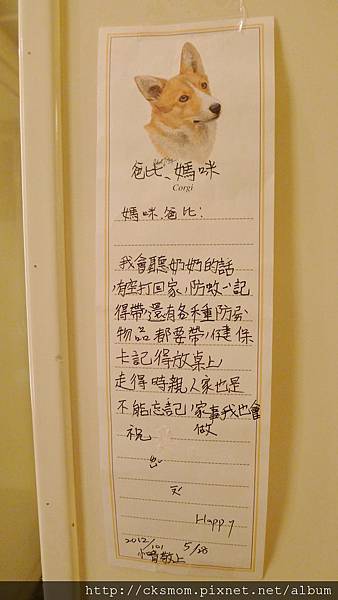 爸比、媽咪
Corgi
媽咪、爸比:
我會聽奶奶的話
有空打回家,防蚊心記
得帶還有各種防
物品都要帶,健保
卡記得放桌上,
走得時親人家也是
不能忘記,家事我也會
祝 做
Happy
2012/101 5/28
敬上
http://cksmom.pixnet.net/album